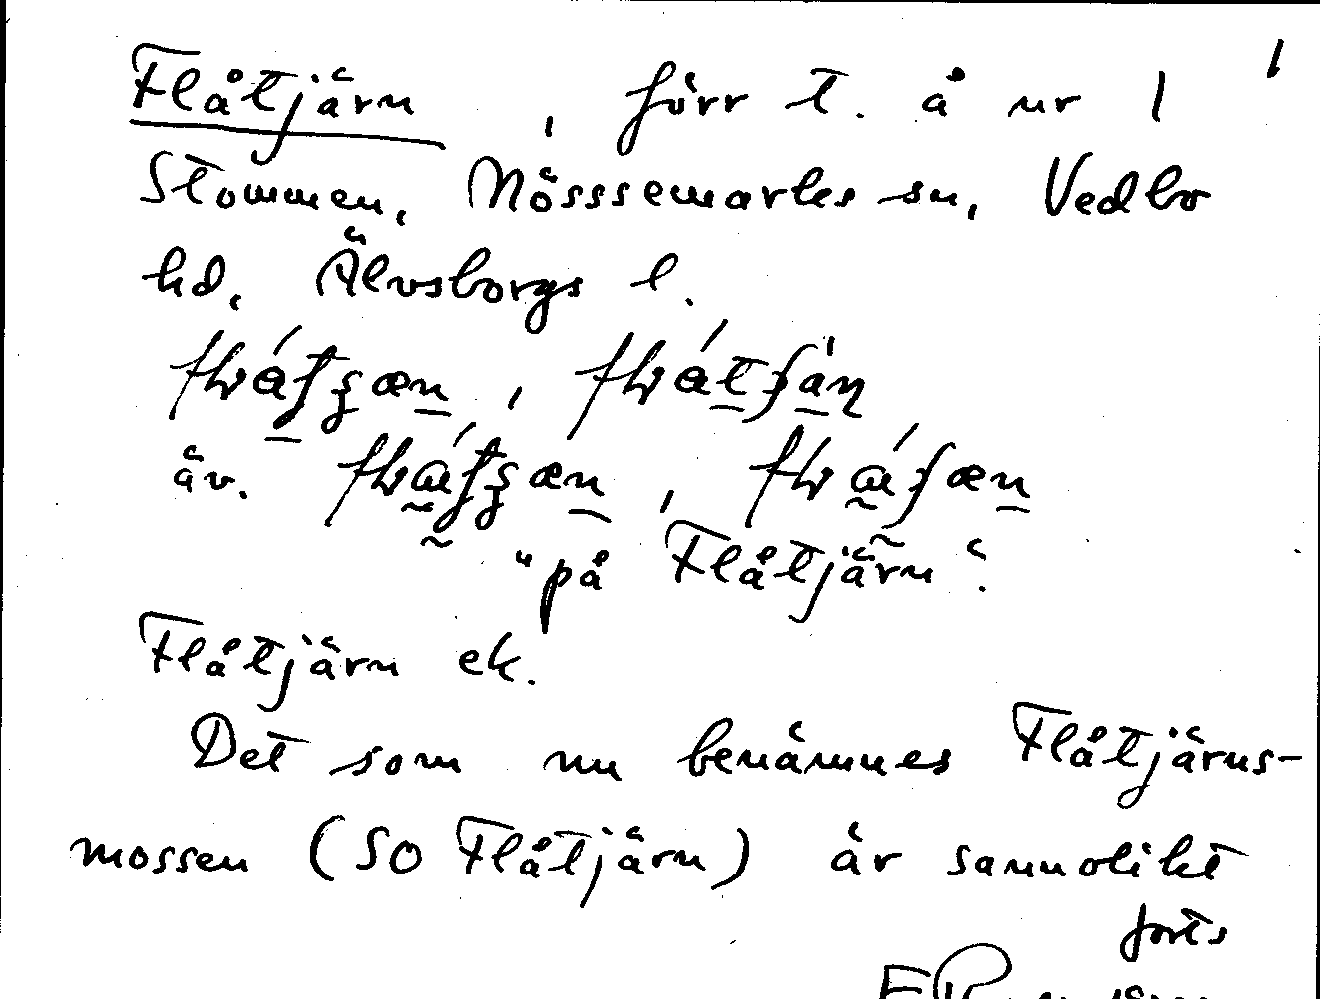 1
Flåtjärn, förr t. å ur 1
Stommen, Nösssemarks sn, Vedbo
hd, Älvsborgs l.
äv.
"på Flåtjärn".
Flåtjärn ek.
Det som nu benämnes Flåtjärns-
mossen (SO Flåtjärn) är sannolikt
forts